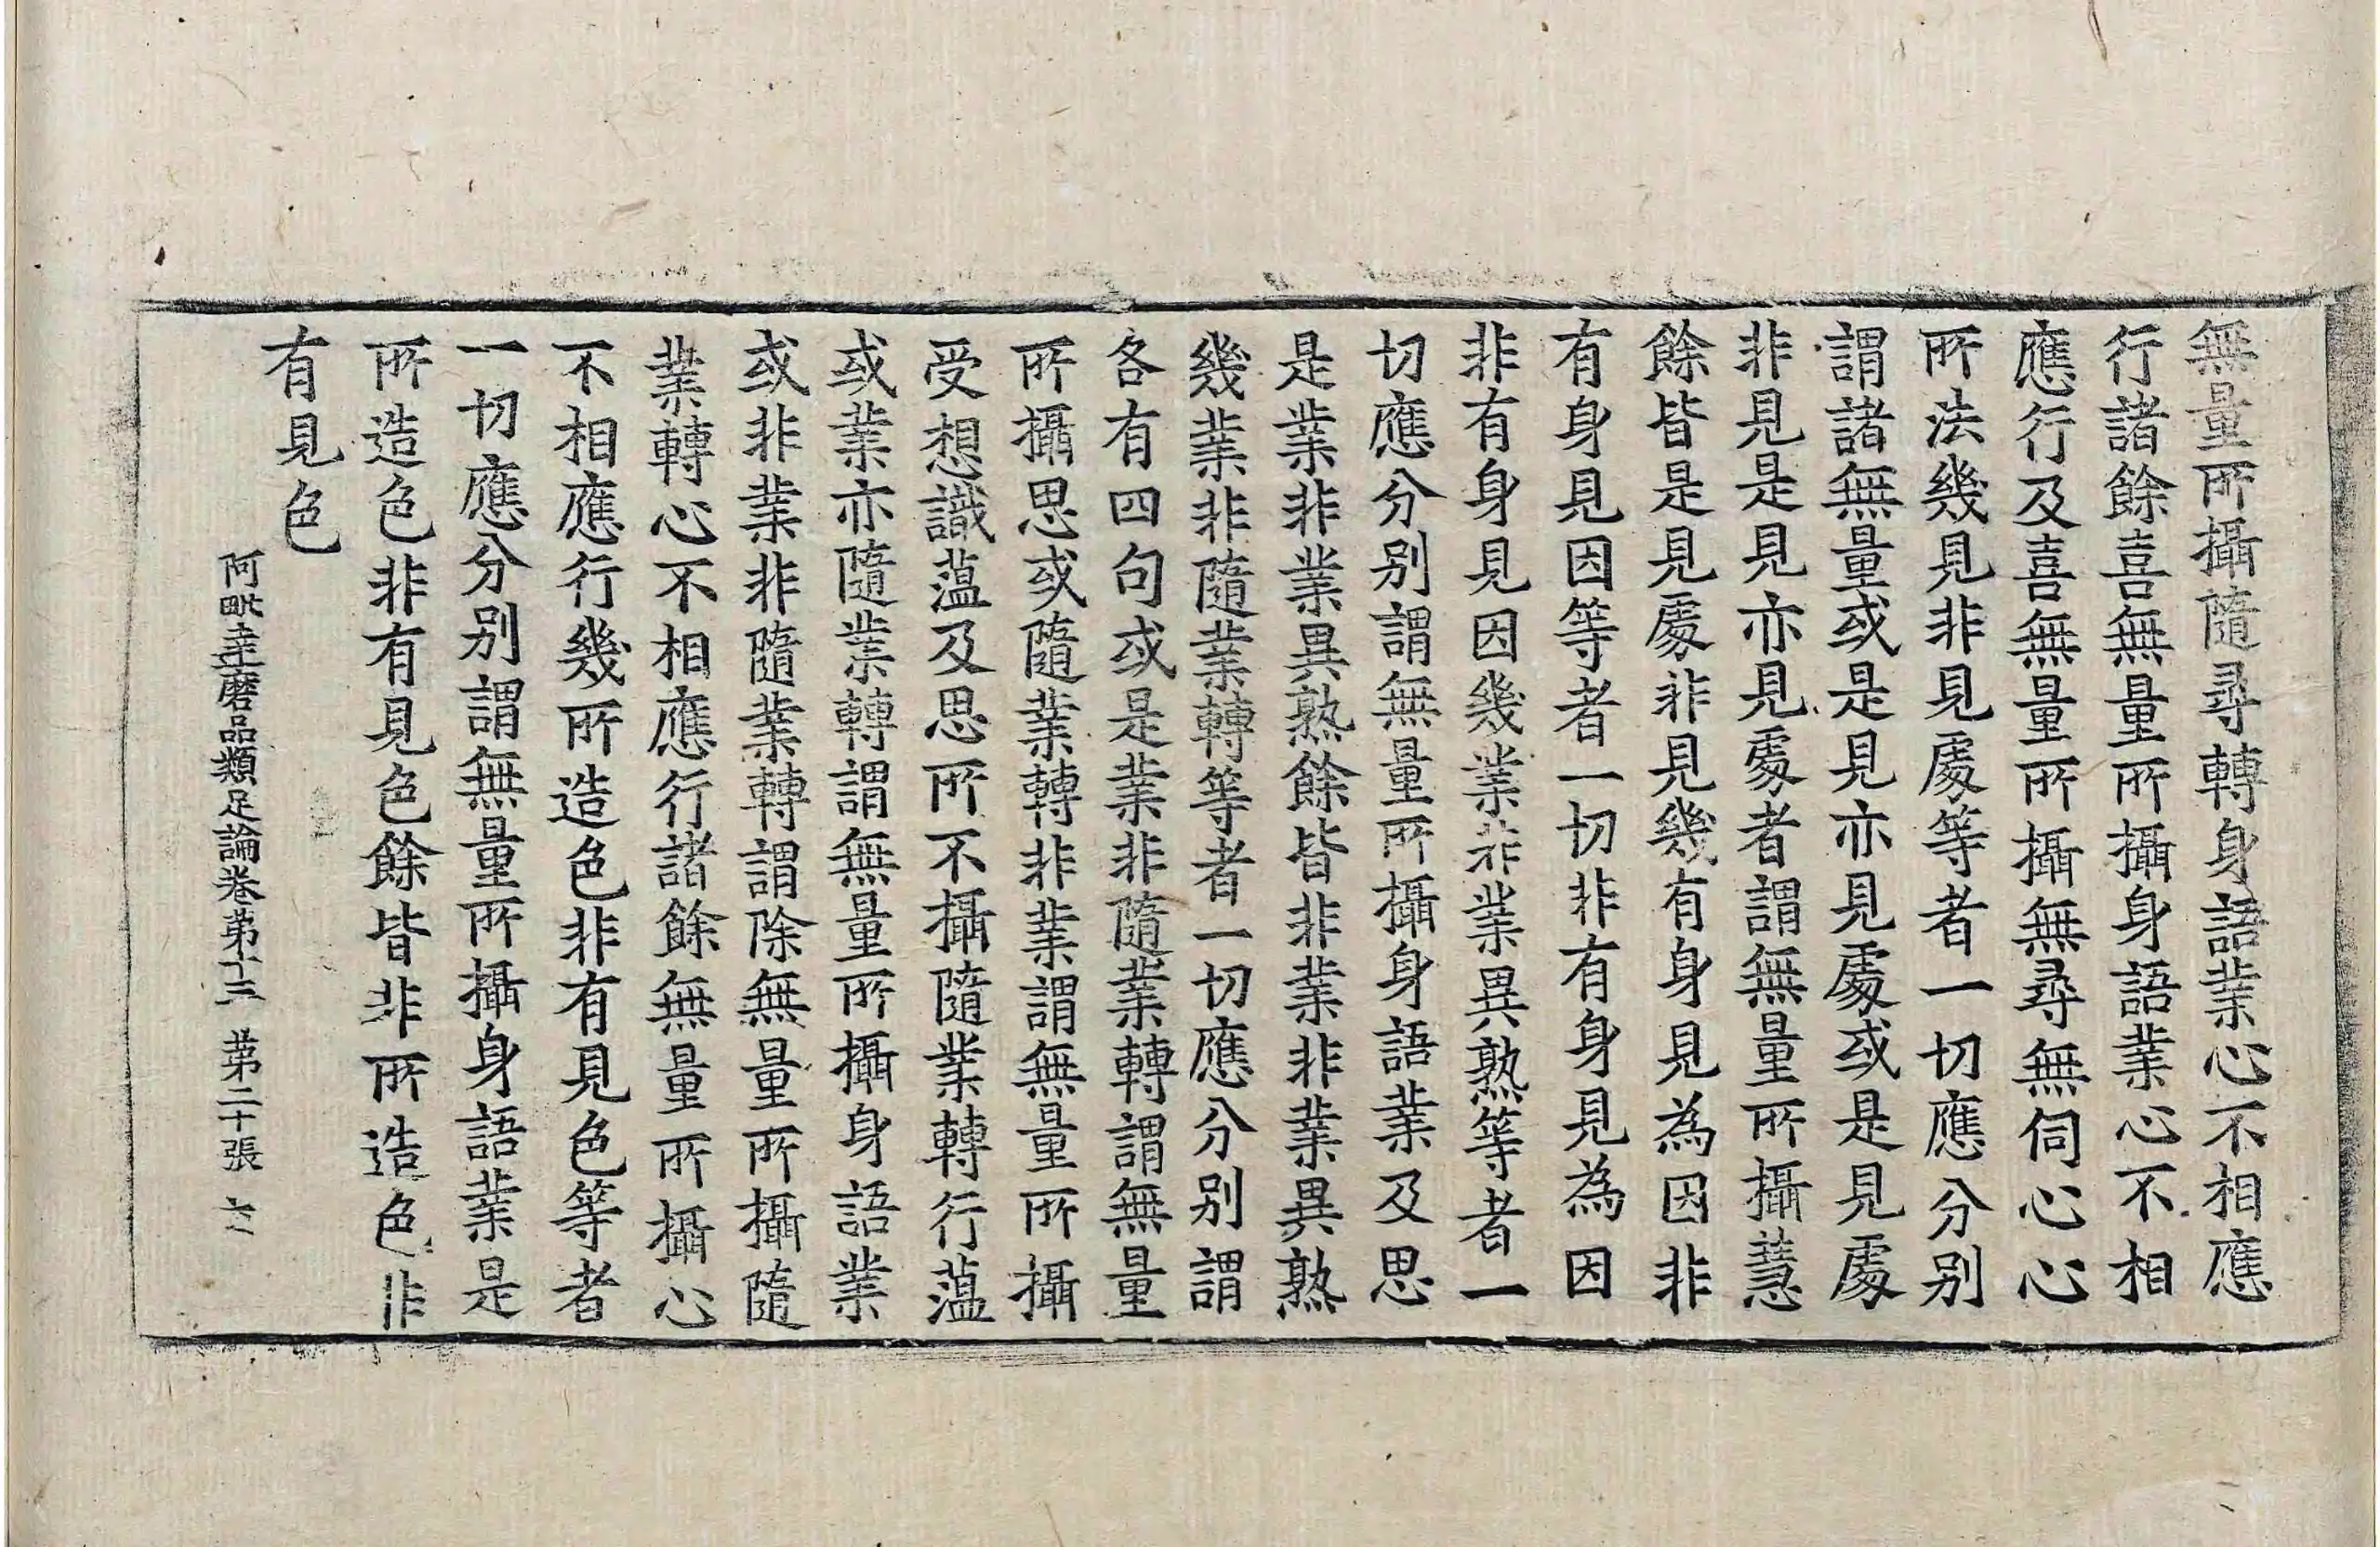 無量所攝隨尋轉身語業心不相應
行諸餘喜無量所攝身語業心不相
應行及喜無量所攝無尋無伺心心
所法幾見非見處等者一切應分別
謂諸無量或是見亦見處或是見處
非見是見亦見處者謂無量所攝慧
餘皆是見處非見幾有身見為因非
有身見因等者一切非有身見為因
非有身見因幾業非業異熟等者一
切應分別謂無量所攝身語業及思
是業非業異熟餘皆非業非業異熟
幾業非隨業轉等者一切應分別謂
各有四句或是業非隨業轉謂無量
所攝思或隨業轉非業謂無量所攝
受想識薀及思所不攝隨業轉行薀
或業亦隨業轉謂無量所攝身語業
或非業非隨業轉謂除無量所攝隨
業轉心不相應行諸餘無量所攝心
不相應行幾所造色非有見色等者
一切應分別謂無量所攝身語業是
所造色非有見色餘皆非所造色非
有見色
阿毗達磨品類足論卷第十三 第二十張